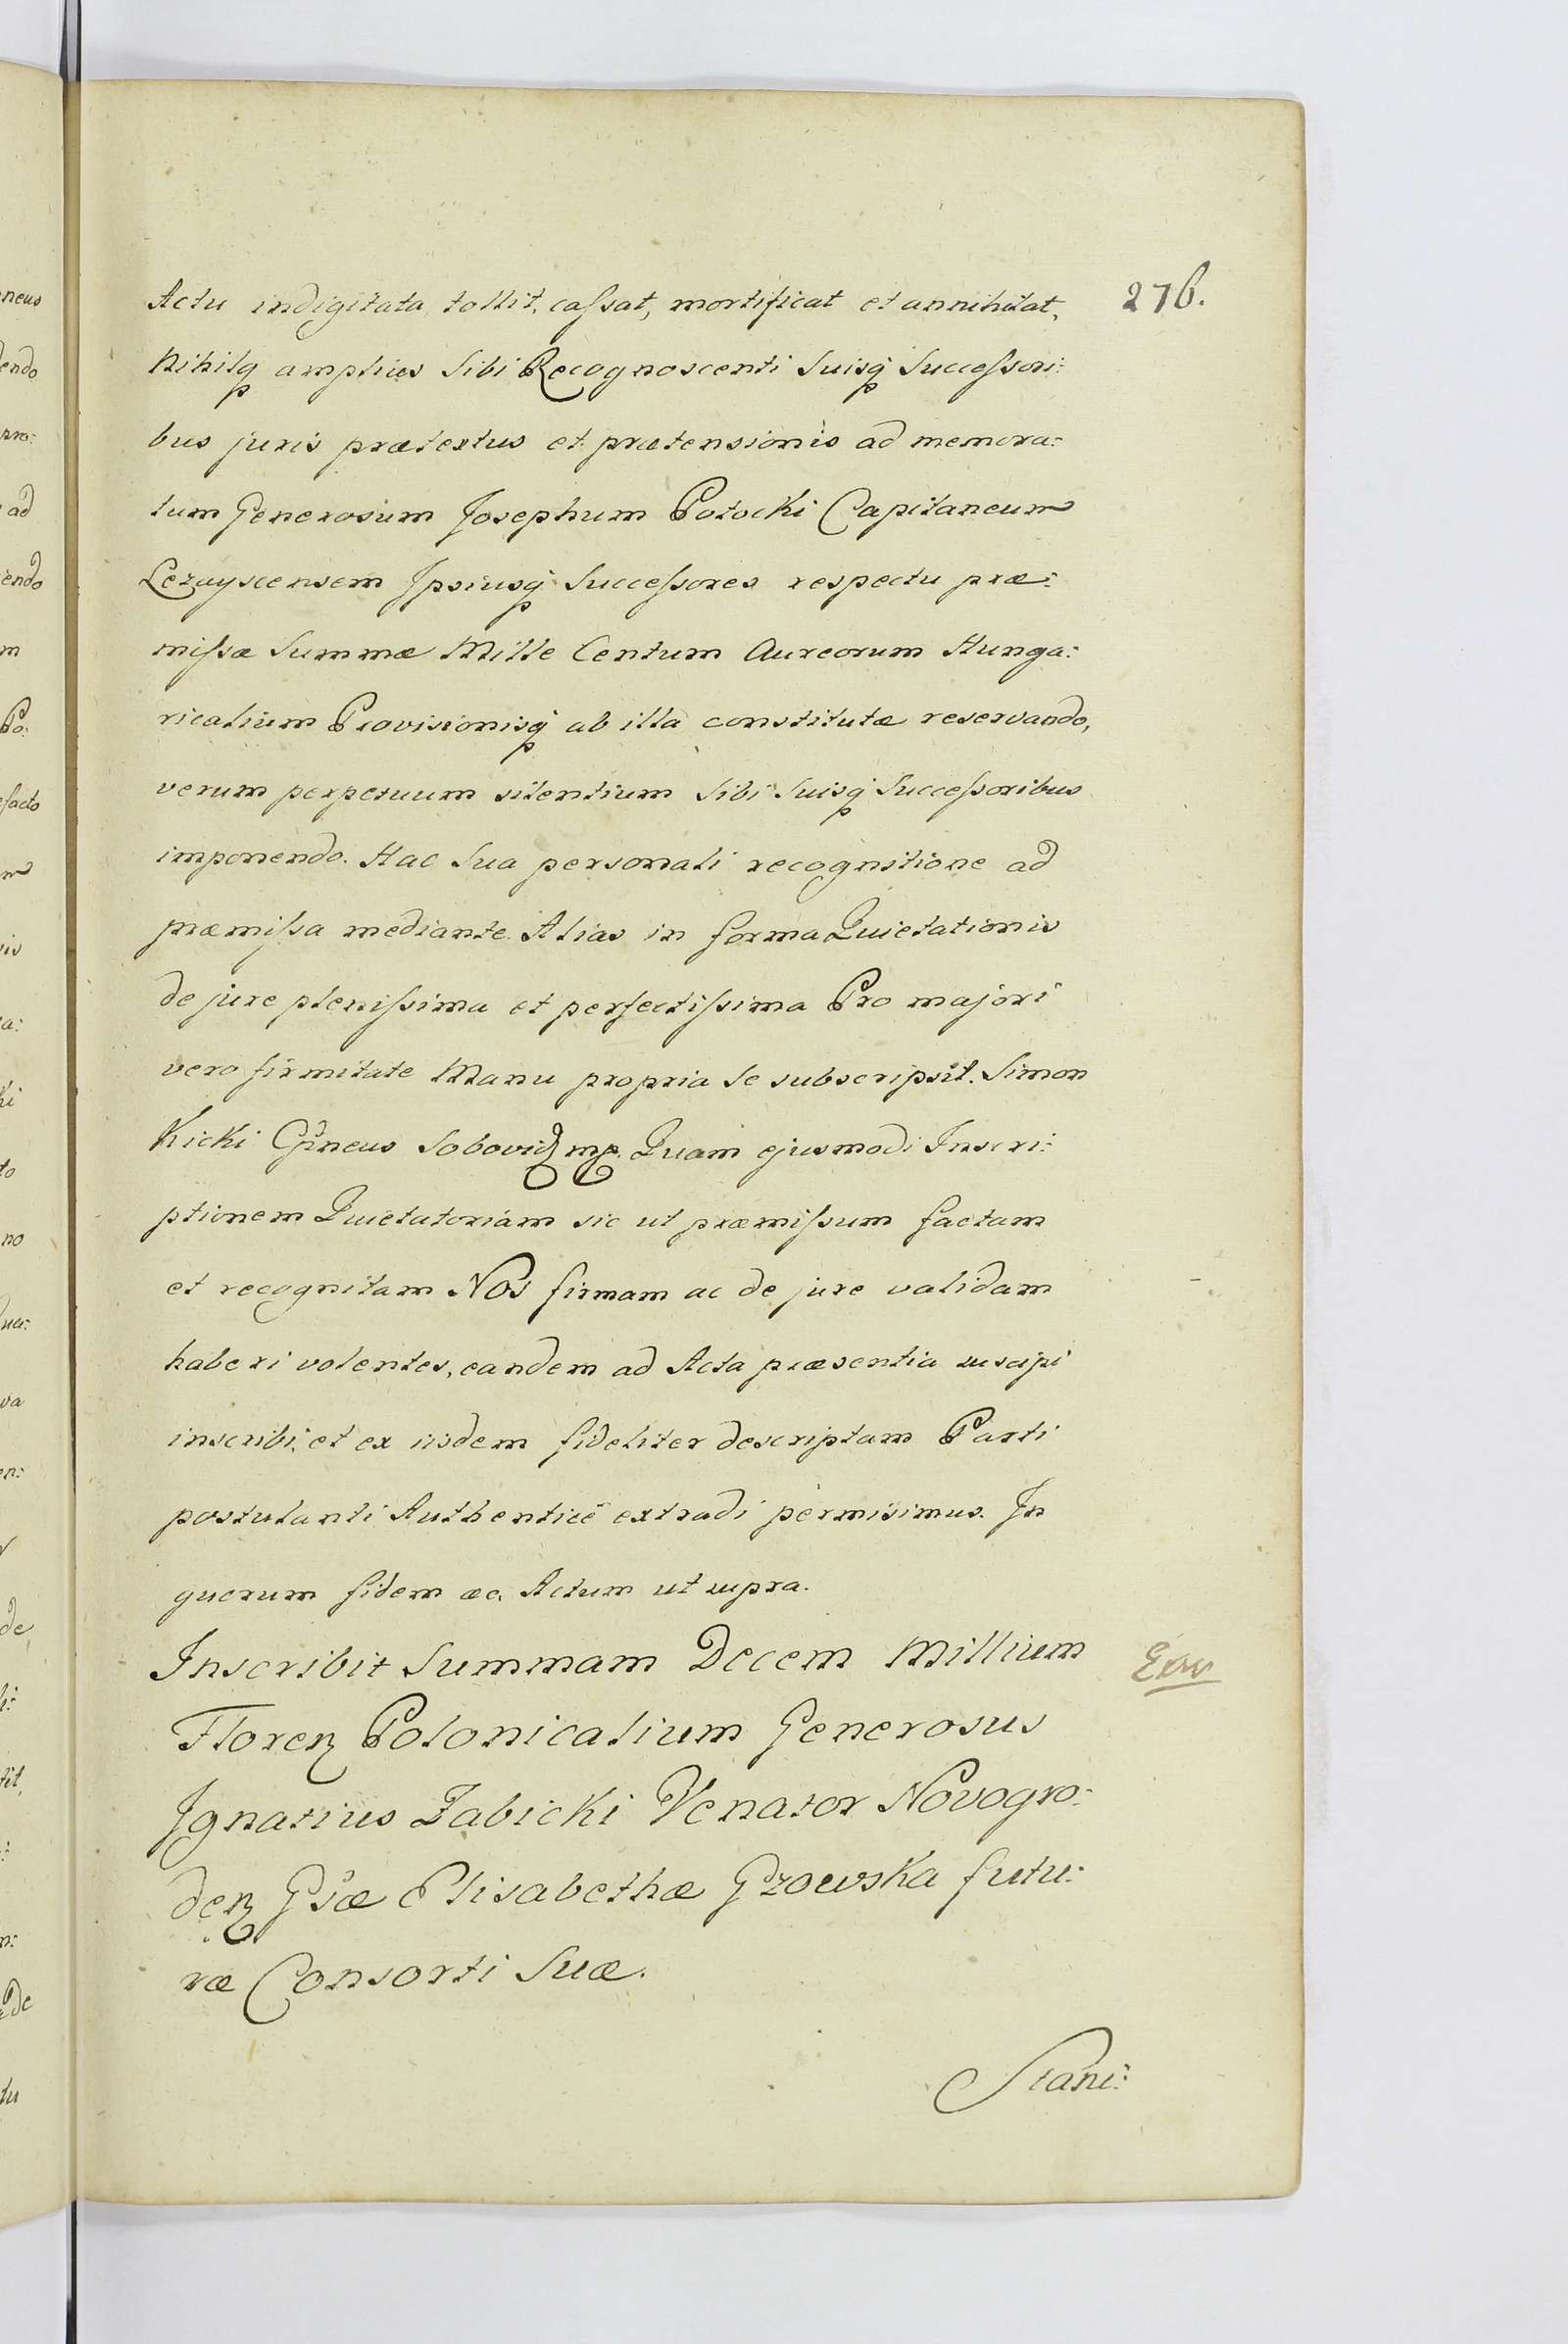 276.
Actu indigitata, tollit, caſsat, mortificat et annihilat,
Nihilq amplius Sibi Recognoscenti Suisq Succeſsori:
bus juris prætextus et prætensionis ad memora:
tum Generosum Josephum Potocki Capitaneum
Lezayscensem Ipsiusq Succeſsores respectu præ:
miſsæ Summæ Mille Centum Aureorum Hunga:
ricalium Provisionisq ab illa constitutæ reservando,
verum perpetuum silentium Sibi Suisq Succeſsoribus
imponendo. Hac Sua personali recognitione ad
præmiſsa mediante. Alias in forma Quietationis
de jure pleniſsima et perfectiſsima Pro majori
vero firmitate Manu propria Se subscripsit. Simon
Kicki Cpneus Sobovien mp. Quam ejusmodi Inscri:
ptionem Quietatoriam sic ut præmiſsum factam
et recognitam Nos firmam ac de jure validam
haberi volentes, eandem ad Acta præsentia suscipi
inscribi, et ex iisdem fideliter descriptam Parti
postulanti Authenticè extradi permisimus. In
quorum fidem &c. Actum ut supra.
Inscribit Summam Decem Millium
Floren Polonicalium Generosus
Ignatius Zabicki Venator Novogro:
den Gsæ Elisabethæ Gzowska futu:
ræ Consorti Suæ.
Stani: